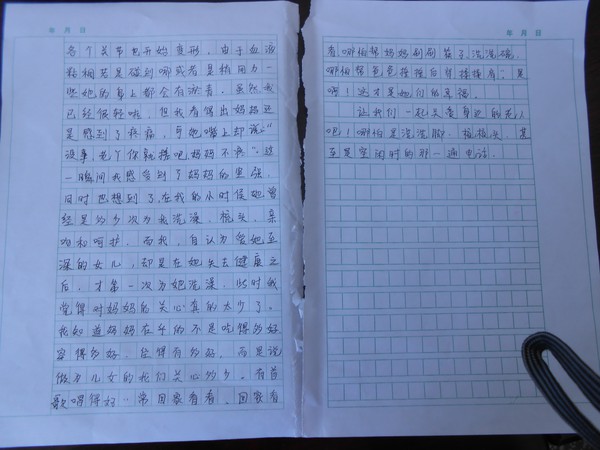 年 月 日
各个关节也开始变形，由于血液
粘稠若是碰到哪或者是格用力一
些她的身上都会有淤青，虽然我
已经很轻啦，但我看得出妈妈还
是感到了疼痛，可她嘴上却说："
没事，老丫你就搓吧妈妈不疼"。这
一瞬间我感受到了妈妈的坚强，
同时也想到了，在我的小时候她曾
经是多少次为我洗澡、梳头，亲
吻和呵护。而我，自认为爱她至
深的女儿，却是在她失去健康之
后，才第一次为她洗澡，此时我
觉得对妈妈的关心真的太少了。
我知道妈妈在乎的不是吃得多好
穿得多好，住得有多好，而是说
做为儿女的我们关心多少。有首
歌唱得好"常回家看看，回家看
年 月 日
看哪怕帮妈妈刷刷筷子洗洗碗，
哪怕帮爸爸捶捶后背揉揉肩，是
啊！这才是她们的幸福。
让我们一起关爱身边的老人
吧！哪怕是洗洗脚、梳梳头，甚
至是空闲时的那一通电话。